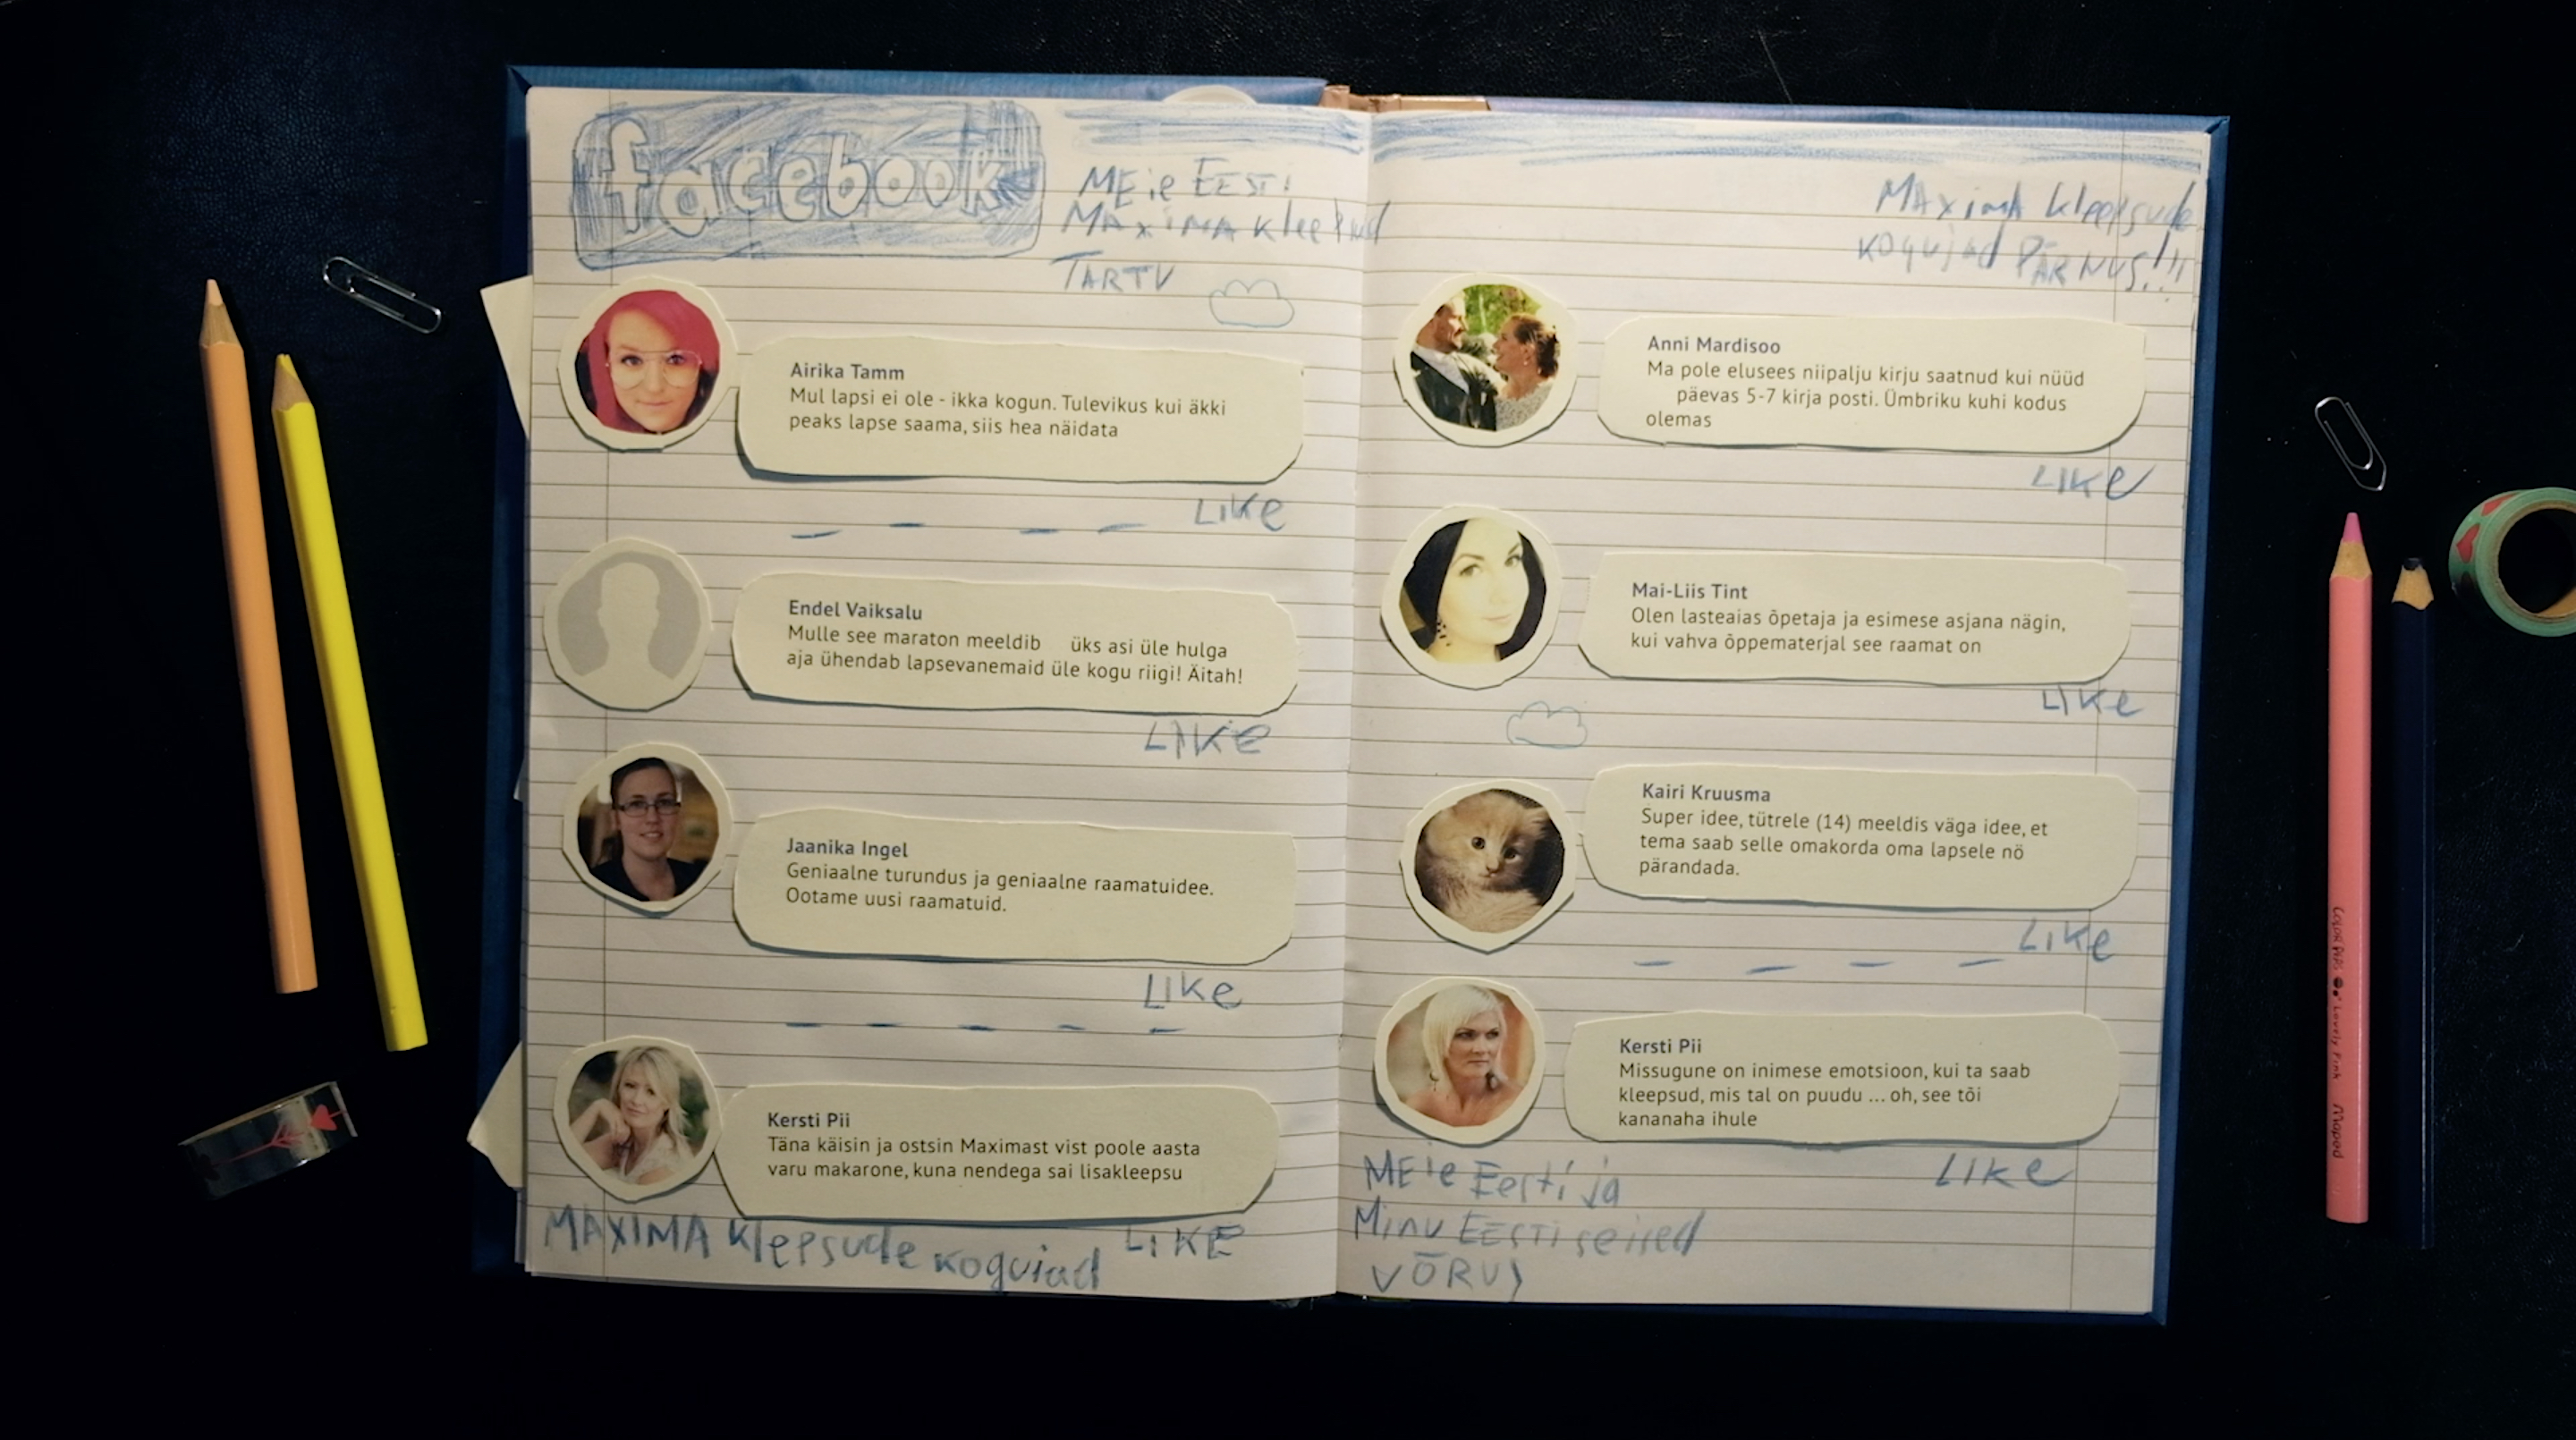 facebook
MEie EESTI
MAXIMA kleepsud
TARTU
Airika Tamm
Mul lapsi ei ole - ikka kogun. Tulevikus kui äkki
peaks lapse saama, siis hea näidata
LIKE
Endel Vaiksalu
Mulle see maraton meeldib üks asi üle hulga
aja ühendab lapsevanemaid üle kogu riigi! Äitah!
LIKE
Jaanika Ingel
Geniaalne turundus ja geniaalne raamatuidee.
Ootame uusi raamatuid.
LIKE
Kersti Pii
Täna käisin ja ostsin Maximast vist poole aasta
varu makarone, kuna nendega sai lisakleepsu
LIKE
MAXIMA kleepsude
kogujad
MAXIMA kleepsude
kogujad PÄRNUS!!!
Anni Mardisoo
Ma pole elusees niipalju kirju saatnud kui nüüd
päevas 5-7 kirja posti. Ümbriku kuhi kodus
olemas
LIKE
Mai-Liis Tint
Olen lasteaias õpetaja ja esimese asjana nägin,
kui vahva õppematerjal see raamat on
LIKE
Kairi Kruusma
Super idee, tütrele (14) meeldis väga idee, et
tema saab selle omakorda oma lapsele nö
pärandada.
LIKE
Kersti Pii
Missugune on inimese emotsioon, kui ta saab
kleepsud, mis tal on puudu ... oh, see tõi
kananaha ihule
LIKE
MEie Eesti ja
Minu EESTI seised
VÕRUS
COLOR'PEPS Lovely Pink Maped